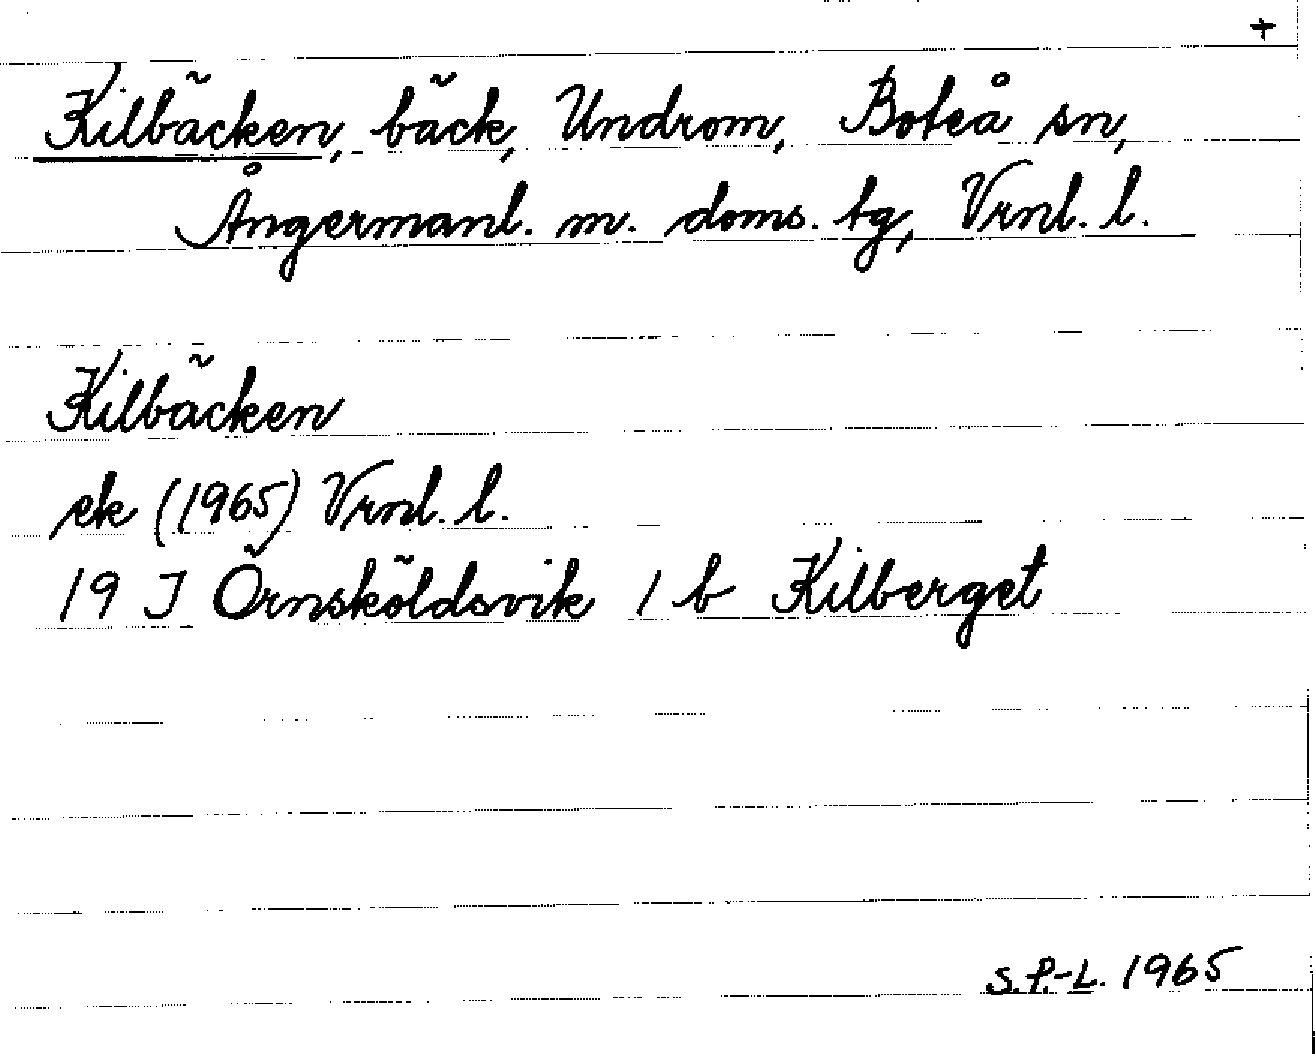 +
Kilbäcken, bäck, Undrom, Boteå sn,
Ångermanl. m. doms. tg, Vrnl. l.
Kilbäcken
ek (1965) Vrnl. l.
19 J Örnsköldsvik 1 b Kilberget
S.P.-L. 1965